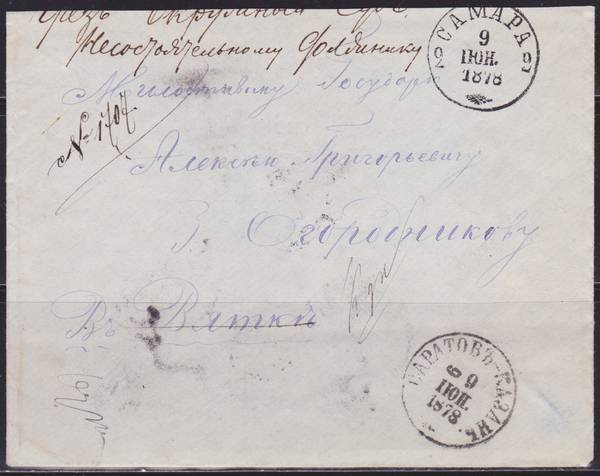 чрез Окружной Суд
Несостоятельному должнику
САМАРА
9
ІЮН.
1878
Милостивому Государю
№ 1707
Алексѣю Григорьевичу
Огородникову
Въ Вяткѣ
САРАТОВЪ-КАЗАНЬ
6 9
ІЮН.
1878